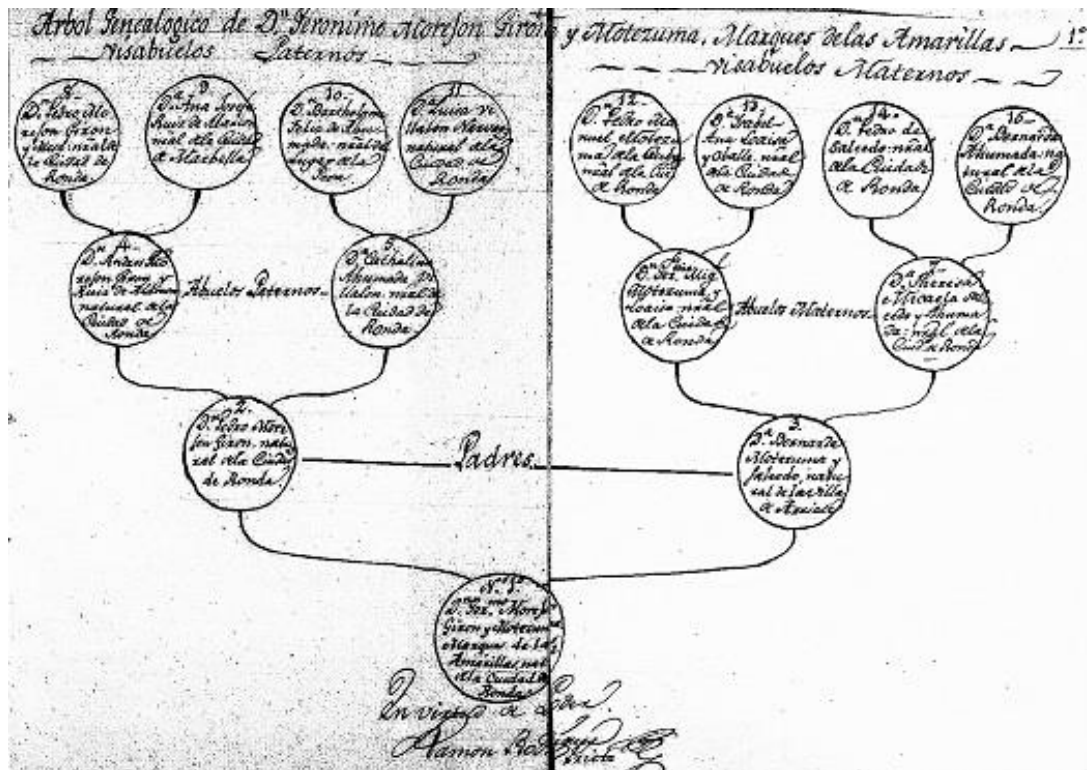 Arbol Genealogico de D.ⁿ Geronimo Moreson Giron y Motezuma, Marques de las Amarillas 1º
Visabuelos Paternos
Visabuelos Maternos
8
D.ⁿ Pedro Mo
reson Giron
y
natural de
la Ciudad de
Ronda
9
D.ª Ana Josefa
Ruiz de
nral de la Ciudad
de Marbella
10
D. Bartholome
Felix de Ahu
mada nral del
Lugar de la
11
D.ª Luisa Vi
llalon Narvaez
natural de la
Ciudad de
Ronda
12
D. Pedro Ma
nuel Motezu
ma de la
nral de la Ciud
de Ronda
13
D.ª Isabel
Ana Loaisa
y Ovalle nral
de la Ciudad
de Ronda
14
D. Pedro de
Salcedo nral
de la Ciudad
de Ronda
15
D.ª Bernarda
Ahumada na
tural de la
Ciudad de
Ronda
4
D.ⁿ
reson Giron
Ruiz de
natural de la
Ciudad de
Ronda
Abuelos Paternos
5
D.ª Cathalina
Ahumada Vi
llalon nral de
la Ciudad de
Ronda
6
D.ⁿ Ger.mo Mig
Motezuma y
Loaisa nral
de la Ciudad
de Ronda
Abuelos Maternos
7
D.ª Theresa
Micaela Sal
cedo y Ahuma
da: nral de la
Ciud de Ronda
2
D.ⁿ Pedro More
son Giron natu
ral de la Ciudad
de Ronda
Padres
3
D.ª Bernarda
Motezuma y
Salcedo, natu
ral de la villa
de
N.º 1º
D.ⁿ Ger.mo Moreson
Giron y Motezuma
Marques de las
Amarillas, nat
de la Ciudad de
Ronda
En virtud de Poder
Ramon